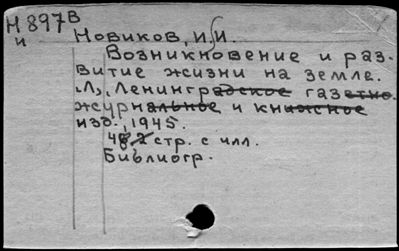 Н897в
и
Новиков, И.И.
Возникновение и раз-
витие жизни на земле.
Л., Ленинградское газетно-
журнальное и книжное
изд., 1945.
стр. с илл.
Библиогр.